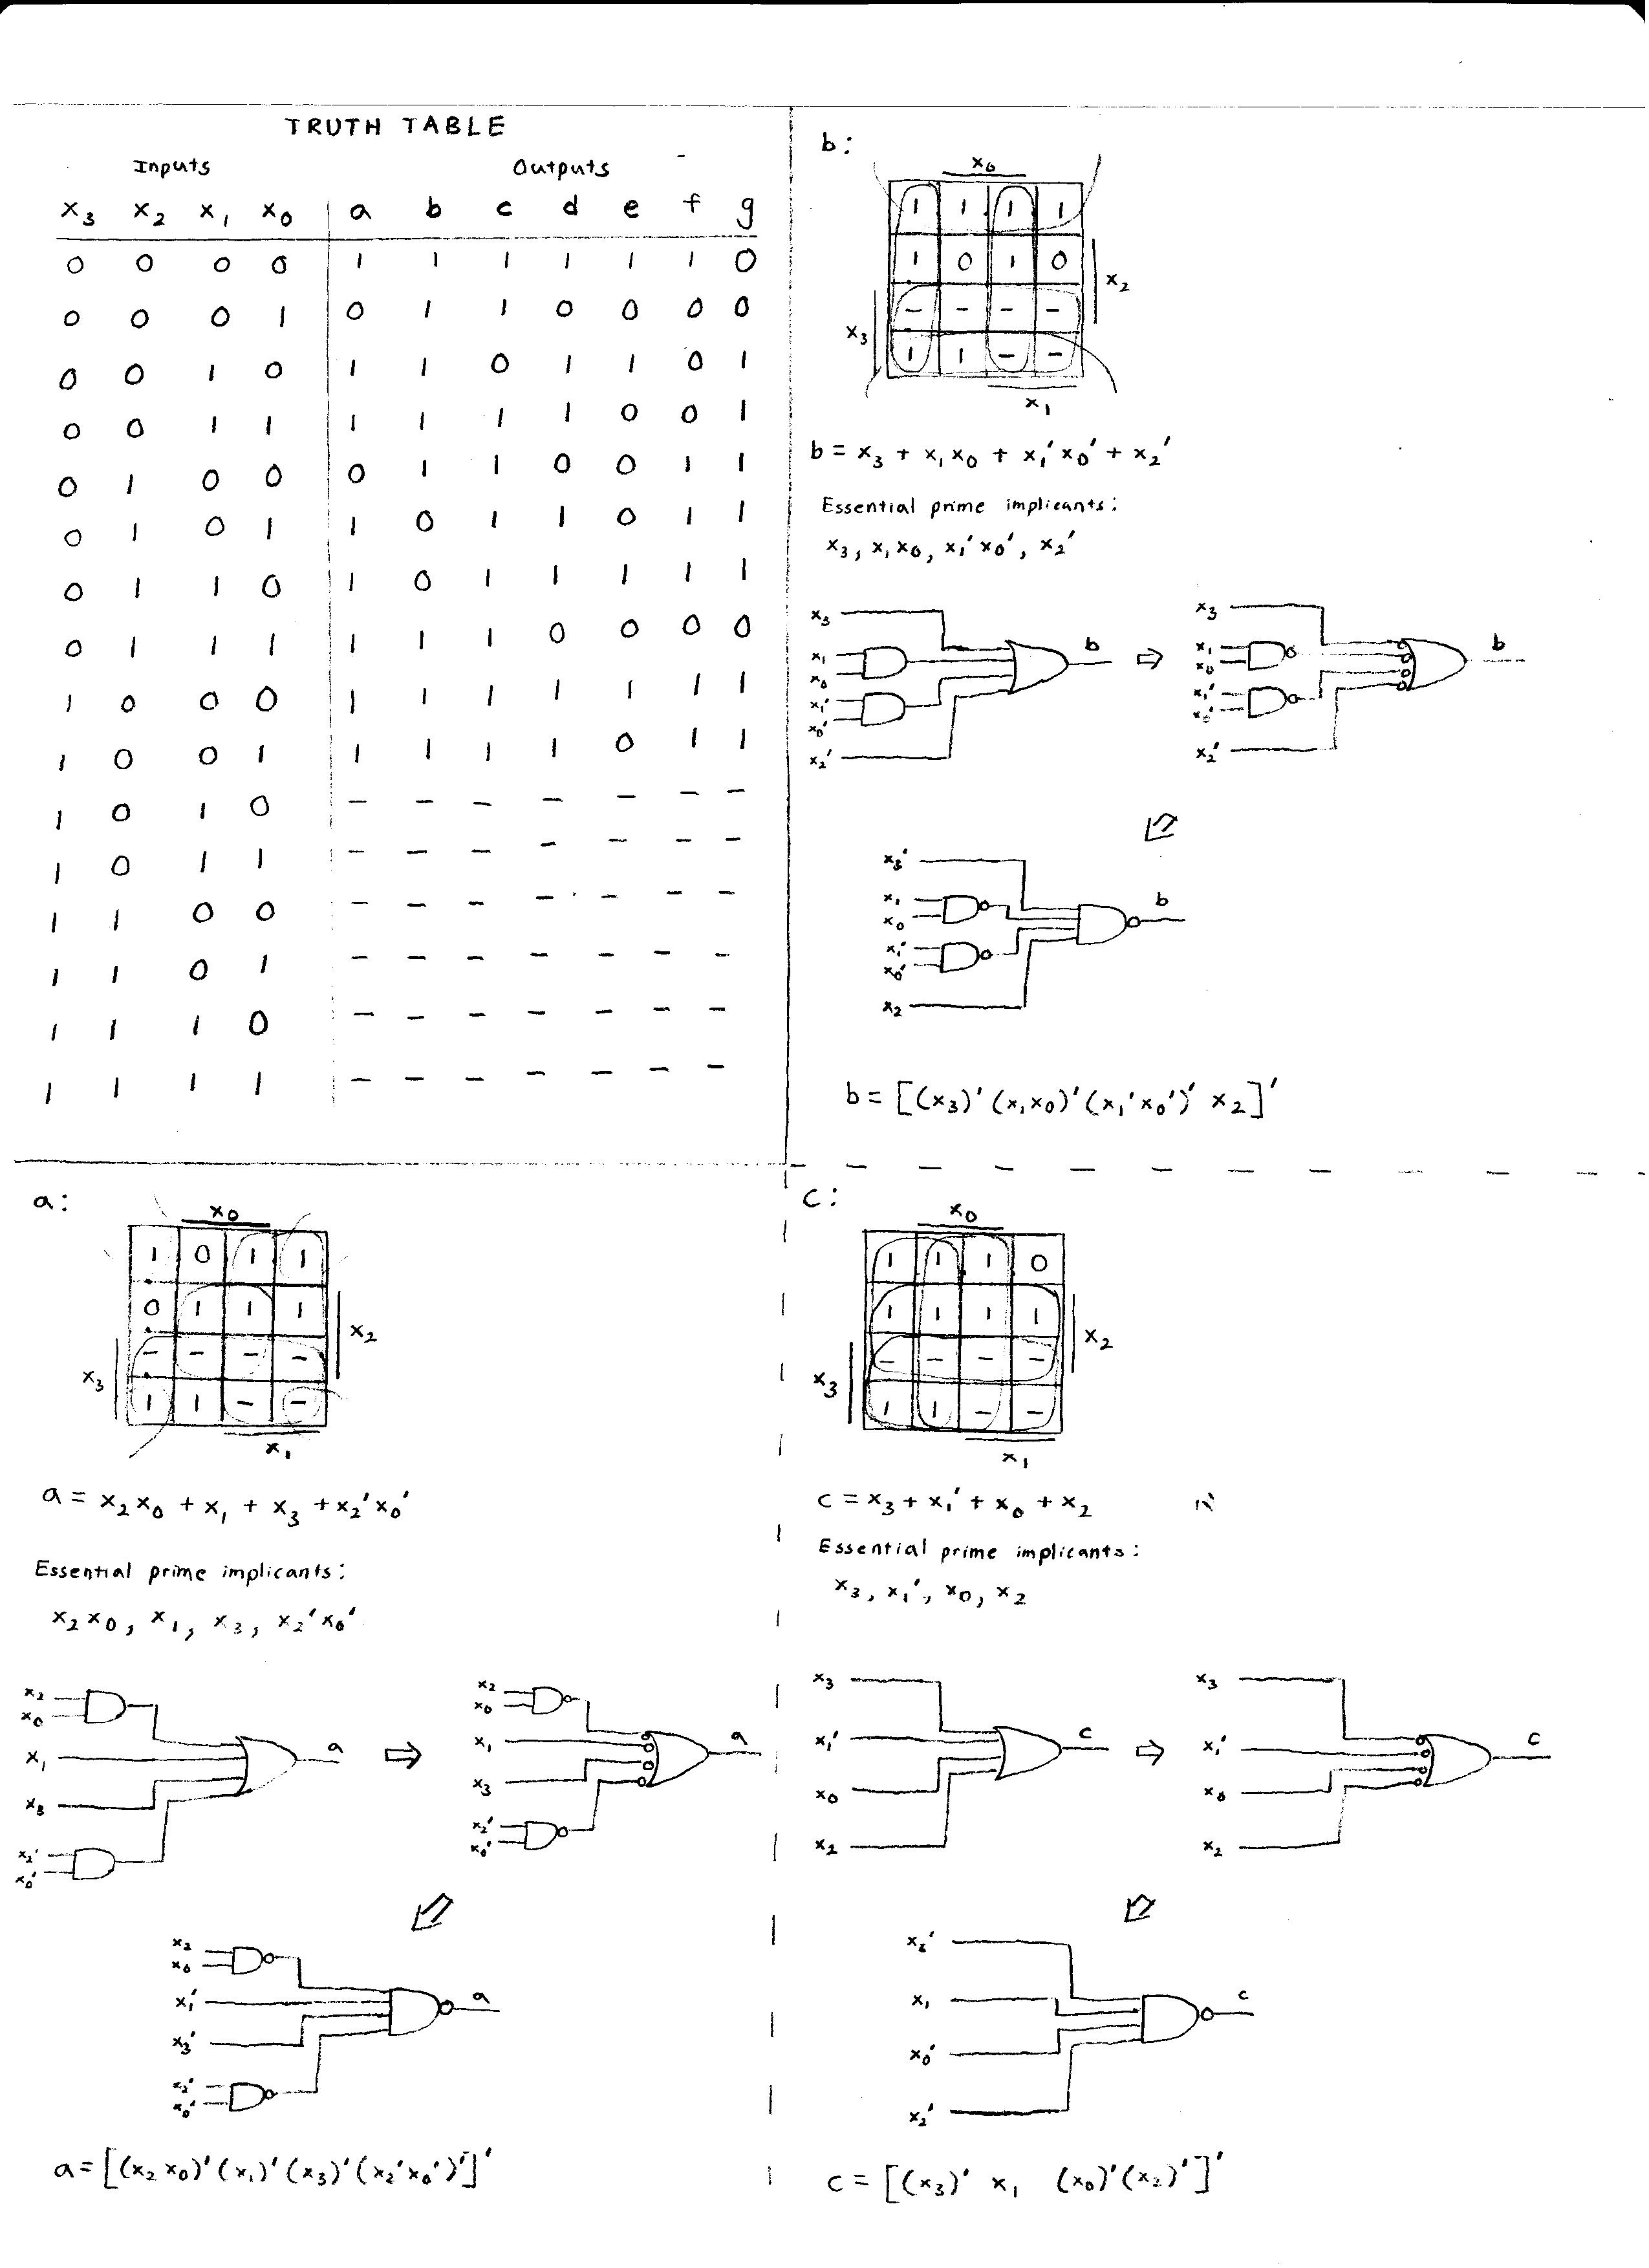 TRUTH TABLE
Inputs Outputs
x3 x2 x1 x0 a b c d e f g
0 0 0 0 1 1 1 1 1 1 0
0 0 0 1 0 1 1 0 0 0 0
0 0 1 0 1 1 0 1 1 0 1
0 0 1 1 1 1 1 1 0 0 1
0 1 0 0 0 1 1 0 0 1 1
0 1 0 1 1 0 1 1 0 1 1
0 1 1 0 1 0 1 1 1 1 1
0 1 1 1 1 1 1 0 0 0 0
1 0 0 0 1 1 1 1 1 1 1
1 0 0 1 1 1 1 1 0 1 1
1 0 1 0 - - - - - - -
1 0 1 1 - - - - - - -
1 1 0 0 - - - - - - -
1 1 0 1 - - - - - - -
1 1 1 0 - - - - - - -
1 1 1 1 - - - - - - -
b:
x0
1 1 1 1
1 0 1 0
x2
- - - -
x3
1 1 - -
x1
b = x3 + x1x0 + x1'x0' + x2'
Essential prime implicants:
x3, x1x0, x1'x0', x2'
x3
x1
x0
x1'
x0'
x2'
b
⇨
x3
x1
x0
x1'
x0'
x2'
b
x3'
x1
x0
x1'
x0'
x2
b
b = [(x3)'(x1x0)'(x1'x0')' x2]'
a:
x0
1 0 1 1
0 1 1 1
x2
- - - -
x3
1 1 - -
x1
a = x2x0 + x1 + x3 + x2'x0'
Essential prime implicants:
x2x0, x1, x3, x2'x0'
x2
x0
x1
x3
x2'
x0'
a
⇨
x2
x0
x1
x3
x2'
x0'
a
x2
x0
x1'
x3'
x2'
x0'
a
a = [(x2x0)'(x1)'(x3)'(x2'x0')']'
c:
x0
1 1 1 0
1 1 1 1
x2
- - - -
x3
1 1 - -
x1
c = x3 + x1' + x0 + x2
Essential prime implicants:
x3, x1', x0, x2
x3
x1'
x0
x2
c
⇨
x3
x1'
x0
x2
c
x3'
x1
x0'
x2'
c
c = [(x3)' x1 (x0)'(x2)']'